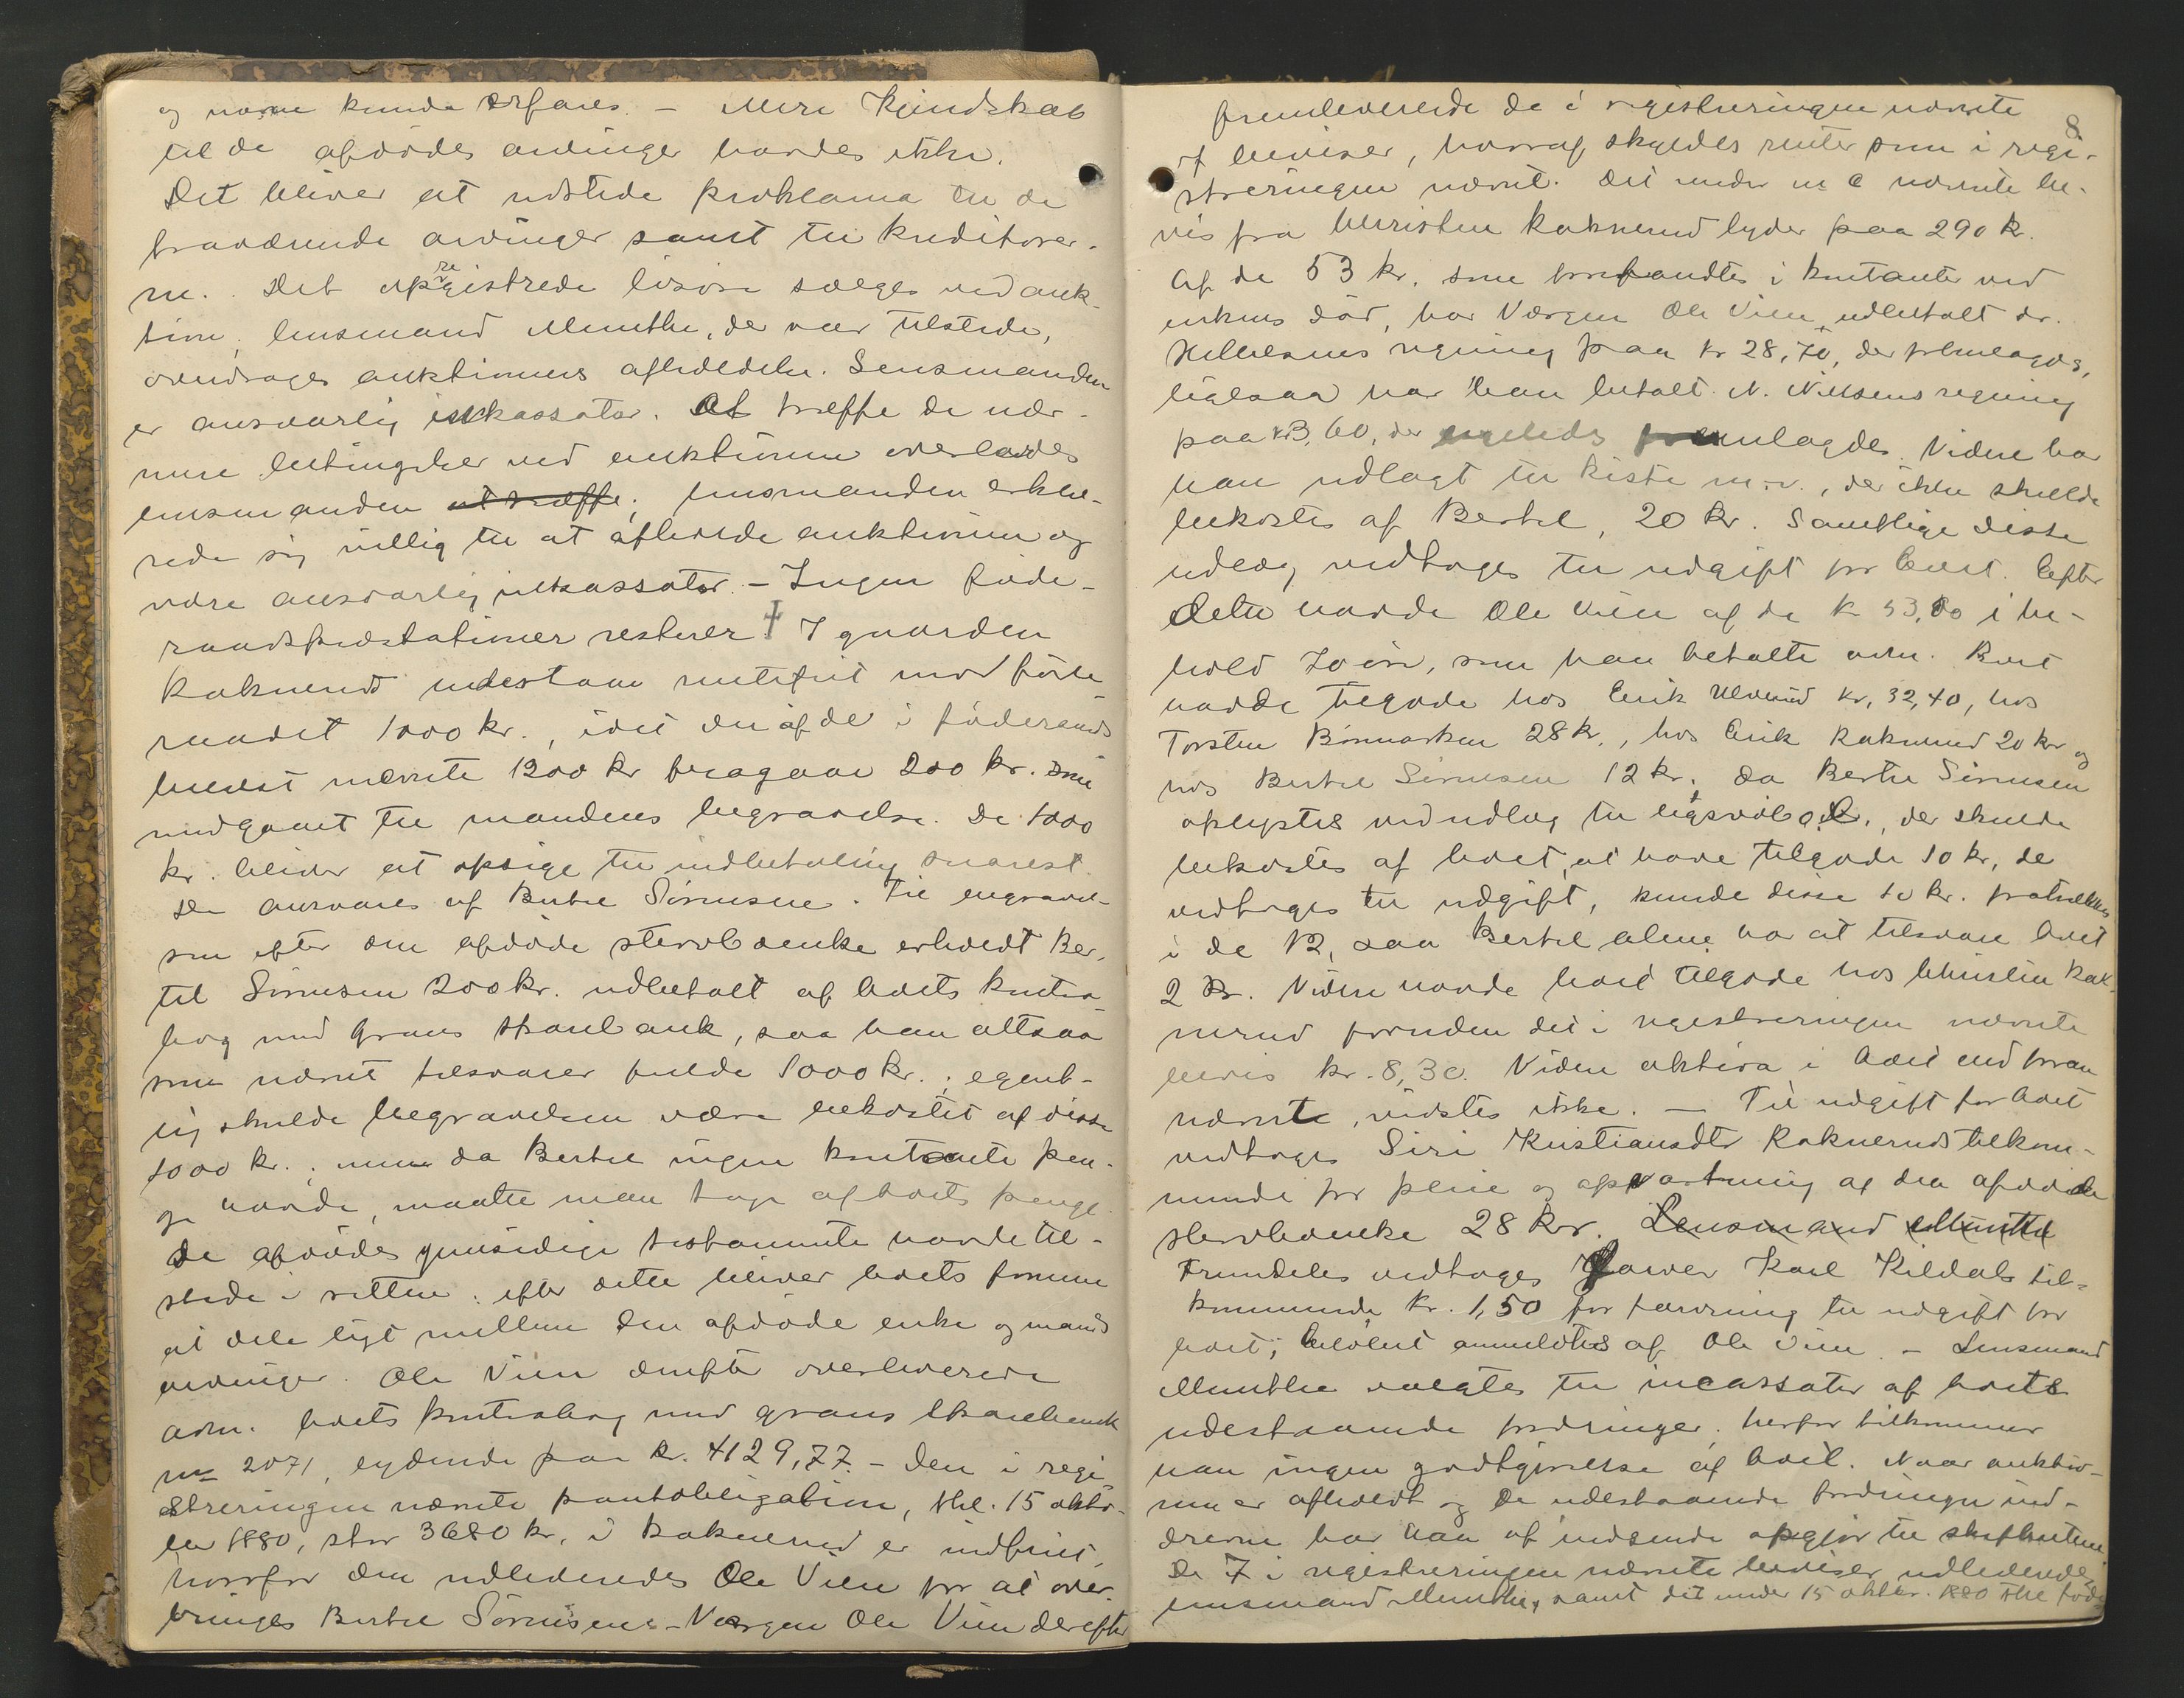 og navne kunde erfares. – Mere kjendskab
til de afdödes arvinger havdes ikke.
Det bliver at udstede proklama til de
fraværende arvinger samt til kreditorer-
ne. Det opregistrede lösöre sælges ved auk-
tion; lensmand Munthe, der var tilstede,
overdroges auktionens afholdelse. Lensmanden
er ansvarlig inkassator. At træffe de nær-
mere betingelser ved auktionen overlodes
lensmanden at træffe; lensmanden erklæ-
rede sig villig til at afholde auktionen og
være ansvarlig inkassator. – Ingen föde-
raadspræstationer resterer. I gaarden
Raknerud indestaar rentefrit mod föde-
raadet 1000 kr., idet der af de i föderaads
brevet nævnte 1200 kr fragaar 200 kr. som
medgaaet til mandens begravelse. De 1000
kr. bliver at opsige til indbetaling snarest.
De ansvares af Bertel Sörensen. Til begravel-
sen efter den afdöde stervboenke erholdt Ber-
tel Sörensen 200 kr. udbetalt af boets kontra
bog med Grans sparebank, saa han altsaa
som nævnt tilsvarer fulde 1000 kr.; egent-
lig skulde begravelsen være bekostet af disse
1000 kr.; men da Bertel ingen kontante pen-
ge havde, maatte man tage af boets penge.
De afdödes gjensidige testamente havde til-
stede i retten; efter dette bliver boets formue
at dele ligt mellem den afdöde enke og mands
arvinger. Ole Vien derefter overleverede
adm. boets kontrabog med Grans sparebank
no 2071, lydende paa kr. 4129,77. – Den i regi-
streringen nævnte pantobligation, thl. 15 okto-
ber 1880, stor 3680 kr, i Raknerud er indfriet,
hvorfor den udleveredes Ole Vien for at over-
bringes Bertel Sörensen. – Værgen Ole Vien derefter
8
fremleverede de i registreringen nævnte
7 beviser, hvoraf skyldes renter som i regi-
streringen nævnt. Det under no 6 nævnte be-
vis fra Christen Raknerud lyder paa 290 kr.
Af de 53 kr. som forefandtes i kontanter ved
enkens död, har Værgen Ole Vien udbetalt dr.
regning paa kr 28,70, der fremlagdes,
ligesaa har han betalt N. Nilsens regning
paa kr 3,60, der ligeledes fremlagdes. Videre har
han udlagt til kiste m.v., der ikke skulde
bekostes af Bertel, 20 kr. Samtlige disse
udlæg vedtoges til udgift for boet. Efter
dette havde Ole Vien af de kr 53,00 i be-
hold 70 öre, som han betalte adm. Boet
havde tilgode hos Erik Ulverud kr. 32,40, hos
Torsten Börmarken 28 kr., hos Erik Raknerud 20 kr og
hos Bertel Sörensen 12 kr. Da Bertel Sörensen
oplystes ved udlæg til ligsvöb o.l., der skulde
bekostes af boet, at have tilgode 10 kr, der
vedtoges til udgift, kunde disse 10 kr. fratrækkes
i de 12, saa Bertel alene har at tilsvare boet
2 kr. Videre havde boet tilgode hos Christen Rak-
nerud foruden det i registreringen nævnte
bevis kr. 8,30. Videre aktiva i boet end foran
nævnte, vidstes ikke. – Til udgift for boet
vedtoges Siri Kristiansdtr Rakneruds tilkom-
mende for pleie og opvartning af den afdöde
stervboenke 28 kr. Lensmand Munthe
Fremdeles vedtoges garver Karl Kildals til-
kommende kr. 1,50 for farvning til udgift for
boet; belöbet anmeldtes af Ole Vien. – Lensmand
Munthe valgtes til incassator af boets
udestaaende fordringer; herfor tilkommer
han ingen godtgjörelse af boet. Naar auktio-
nen er afholdt og de udestaaende fordringer ind-
drevne har han at indsende opgjör til skifteretten.
De 7 i registreringen nævnte beviser udleveredes
lensmand Munthe, samt det under 15 oktbr. 1880 thl. föde